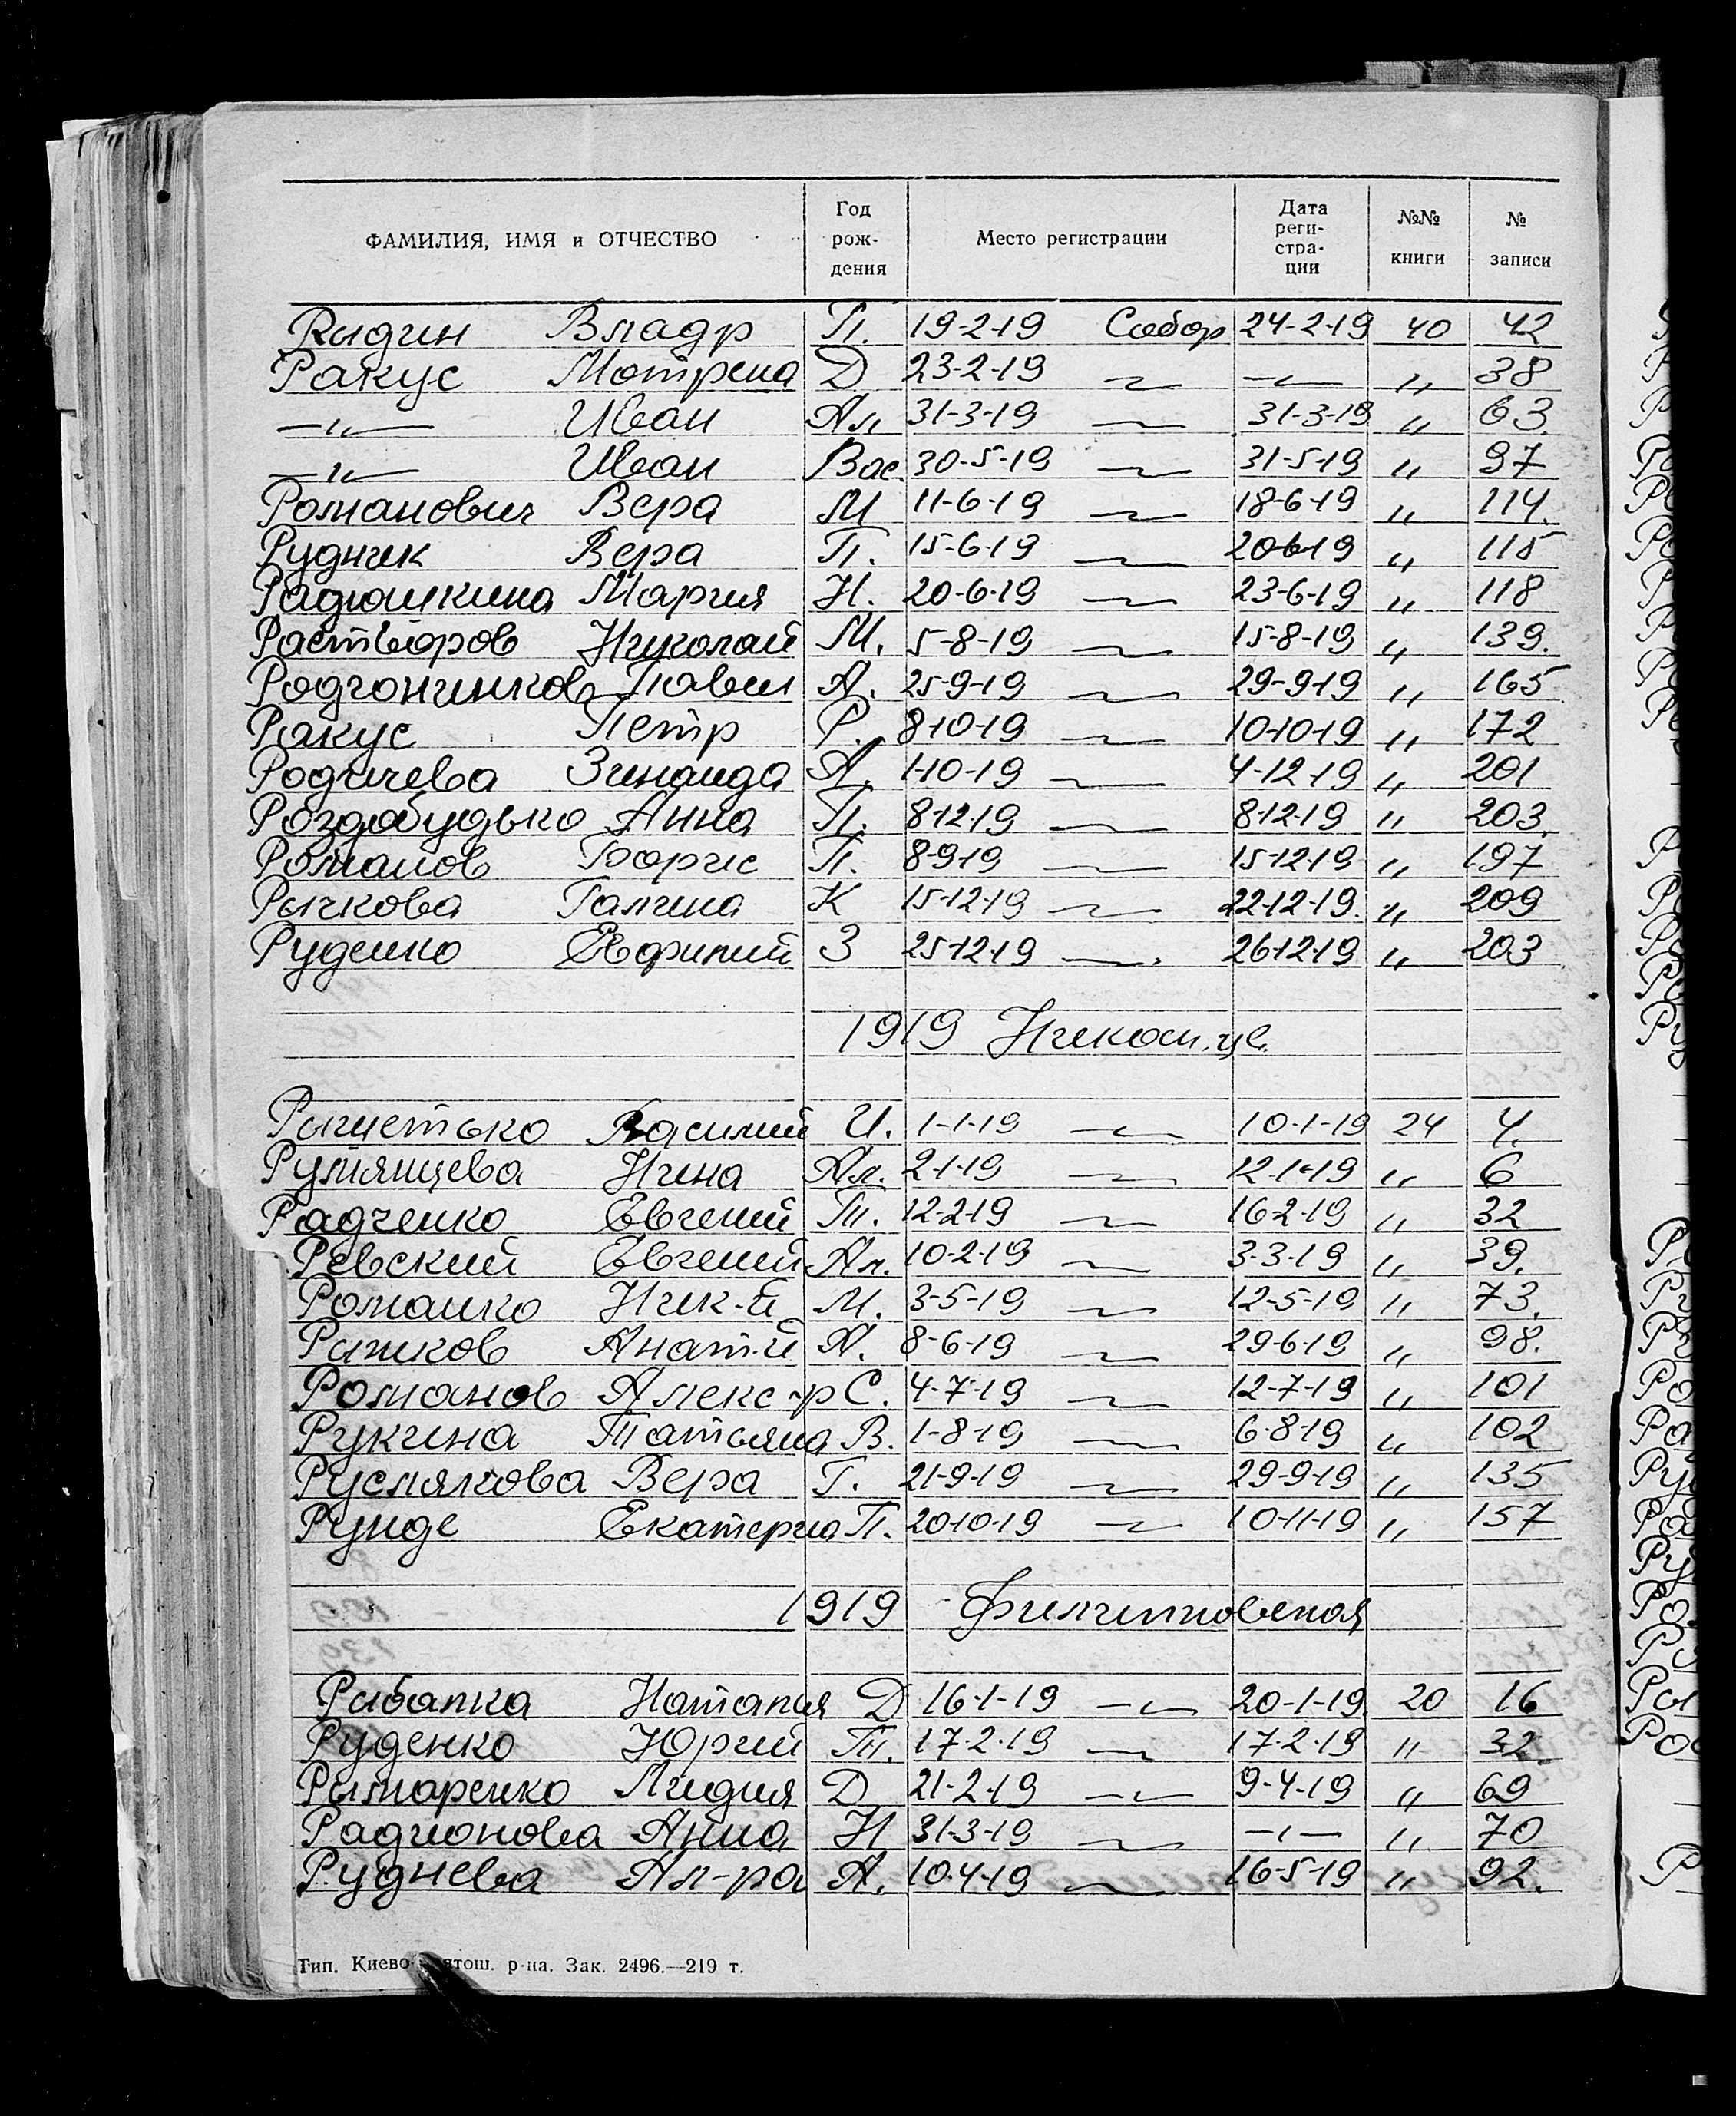 ФАМИЛИЯ, ИМЯ и ОТЧЕСТВО Год рож- дения Место регистрации Дата реги- стра- ции №№ книги № записи
Рыдин Владр П. 19-2-19 Собор 24-2-19 40 42
Ракус Мотрена Д 23-2-19 —〃— —〃— 〃 38
—〃— Иван Ал 31-3-19 —〃— 31-3-19 〃 63.
—〃— Иван Вас. 30-5-19 —〃— 31-5-19 〃 97
Романович Вера М 11-6-19 —〃— 18-6-19 〃 114.
Рудник Вера П. 15-6-19 —〃— 20-6-19 〃 115
Радюшкина Мария Н. 20-6-19 —〃— 23-6-19 〃 118
Растворов Николай М. 5-8-19 —〃— 15-8-19 〃 139.
Родионников Павел А. 25-9-19 —〃— 29-9-19 〃 165
Ракус Петр Р. 8-10-19 —〃— 10-10-19 〃 172
Родичева Зинаида А. 1-10-19 —〃— 4-12-19 〃 201
Роздобудько Анна П. 8-12-19 —〃— 8-12-19 〃 203.
Романов Борис П. 8-9-19 —〃— 15-12-19 〃 197
Рычкова Галина К 15-12-19 —〃— 22-12-19. 〃 209
Руденко Евфимий З 25-12-19 —〃— 26-12-19. 〃 203
1919 Никол. цв.
Василий И. 1-1-19 —〃— 10-1-19 24 4.
Румянцева Нина Ал. 2-1-19 —〃— 12-1-19 〃 6
Радченко Евгений Т. 12-2-19 —〃— 16-2-19 〃 32
Ревский Евгений Ал. 10-2-19 —〃— 3-3-19 〃 39.
Романко Ник-й М. 3-5-19 —〃— 12-5-19 〃 73.
Рыжков Анат-й А. 8-6-19 —〃— 29-6-19 〃 98.
Романов Алекс-р С. 4-7-19 —〃— 12-7-19 〃 101
Рукина Татьяна В. 1-8-19 —〃— 6-8-19 〃 102
Руслякова Вера Г. 21-9-19 —〃— 29-9-19 〃 135
Рунде Екатерина П. 20-10-19 —〃— 10-11-19 〃 157
1919 Филипповская
Рыбалка Наталия Д 16-1-19 —〃— 20-1-19. 20 16
Руденко Юрий Т. 17-2-19 —〃— 17-2-19 〃 32
Рымаренко Лидия Д 21-2-19 —〃— 9-4-19 〃 69
Радионова Анна Н 31-3-19 —〃— —〃— 〃 70
Руднева Ал-ра А. 10-4-19 —〃— 16-5-19 〃 92.
Тип. Киево- р-на. Зак. 2496.—219 т.